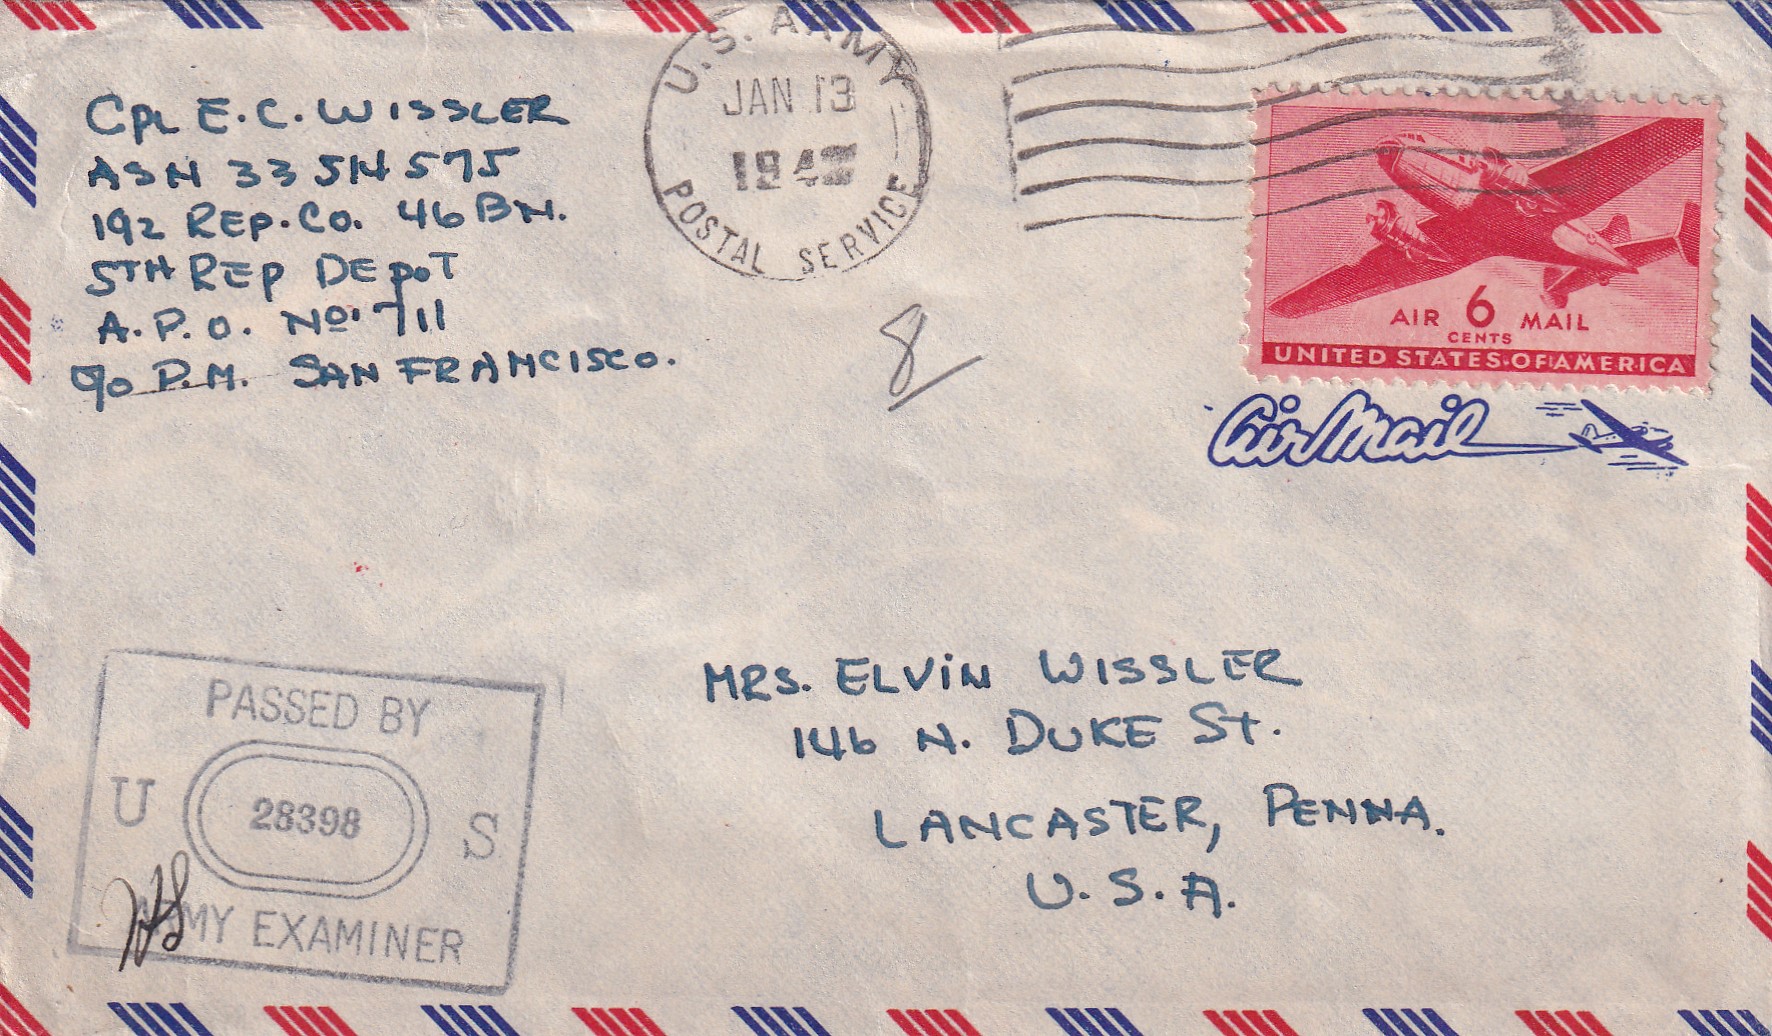 Cpl E.C. WISSLER
ASN 33 514 575
192 REP. Co. 46 BN.
5TH REP DEPOT
A.P.O. No. 711
c/o P.M. SAN FRANCISCO.
U.S. ARMY
JAN 13
POSTAL SERVICE
8
AIR 6 MAIL
CENTS
UNITED STATES OF AMERICA
Air Mail
PASSED BY
U 28398 S
ARMY EXAMINER
MRS. ELVIN WISSLER
146 N. DUKE ST.
LANCASTER, PENNA.
U.S.A.